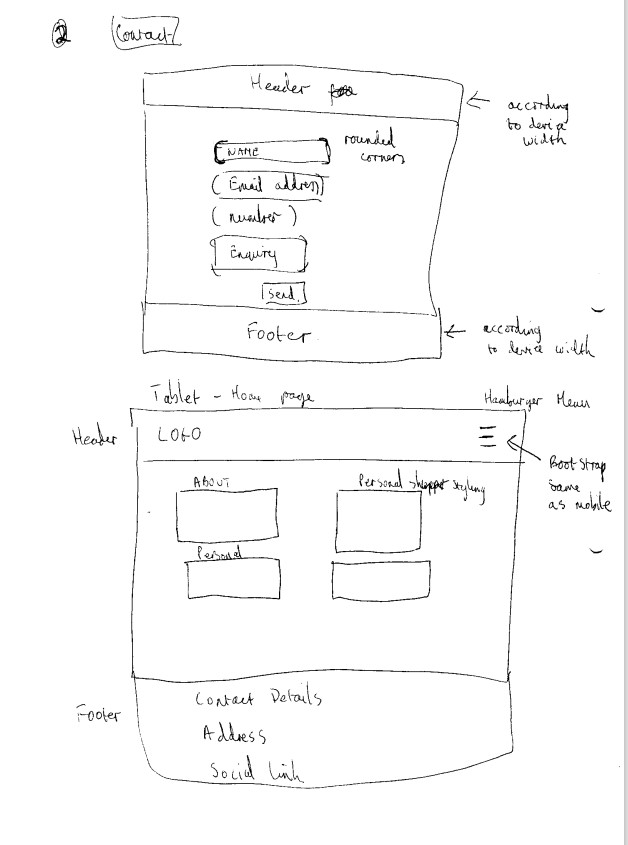 2
Contact
Header
according
to device
width
NAME
rounded
corners
Email address
(number)
Enquiry
Send
Footer
according
to device width
Tablet - Home page
Hamburger Menu
Header
LOGO
Bootstrap
same
as mobile
ABOUT
Personal styling
Personal
Footer
Contact Details
Address
Social link